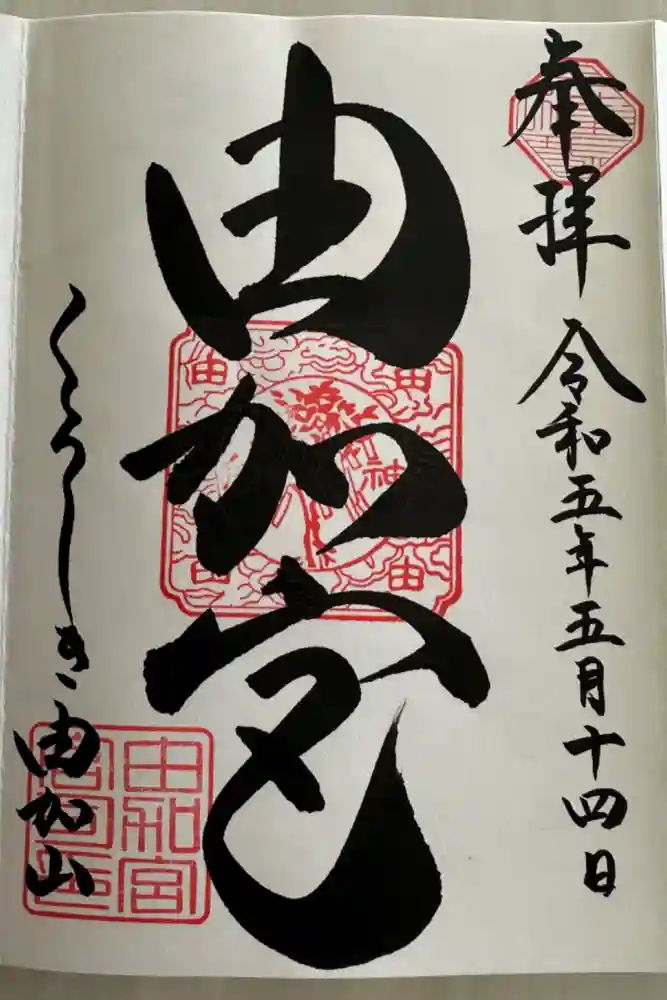 奉拝
令和五年五月十四日
由加宮
くらしき由加山
由
由
神
由
由
由加宮